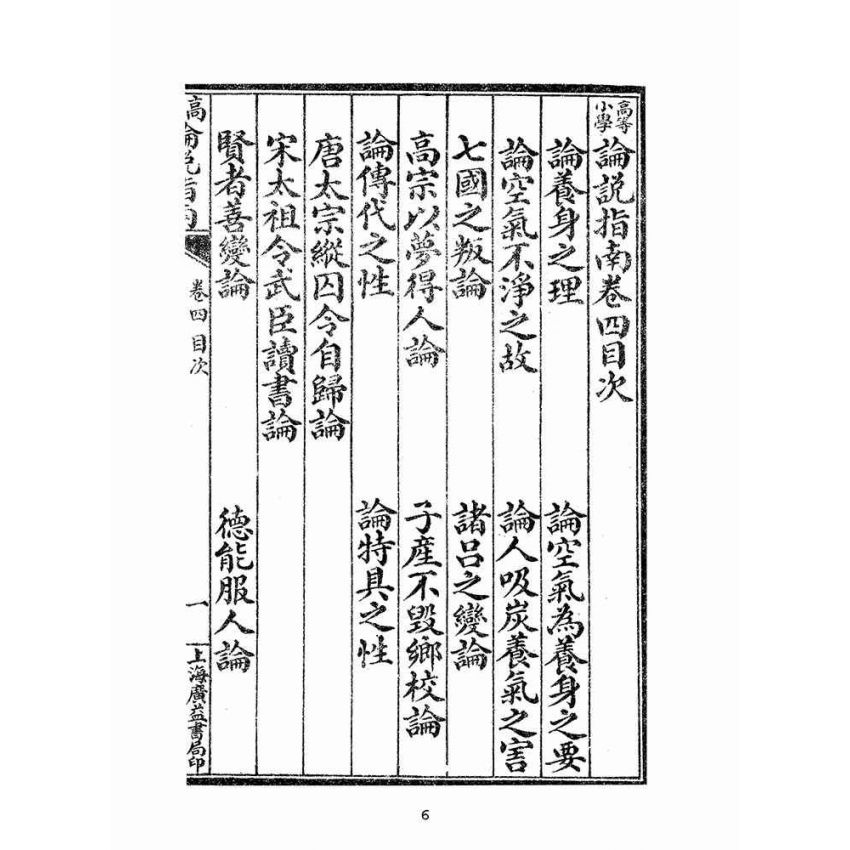 高等小學論說指南卷四目次
論養身之理 論空氣為養身之要
論空氣不淨之故 論人吸炭養氣之害
七國之叛論 諸呂之變論
高宗以夢得人論 子產不毀鄉校論
論傳代之性 論特具之性
唐太宗縱囚令自歸論
宋太祖令武臣讀書論
賢者善變論 德能服人論
論說指南 卷四目次 一 上海廣益書局印
6